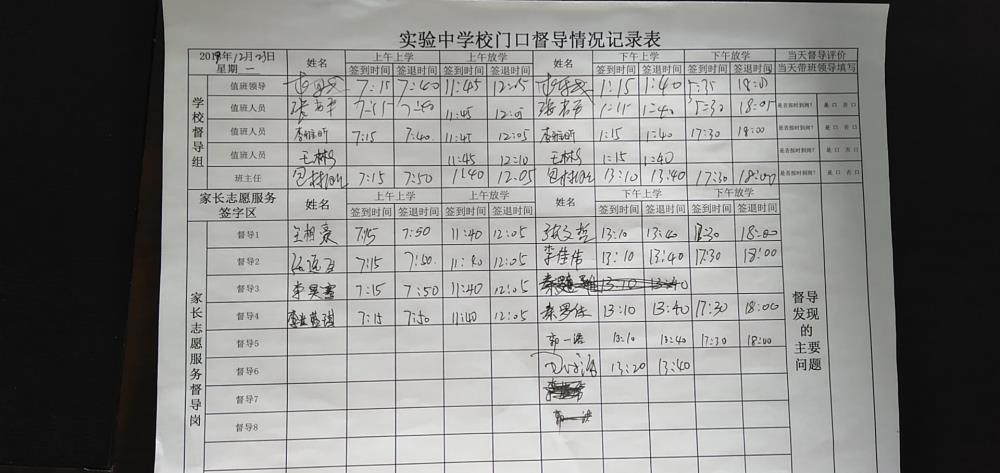 实验中学校门口督导情况记录表
2018年12月23日 星期一 姓名 上午上学 上午放学 姓名 下午上学 下午放学 当天督导评价
签到时间 签退时间 签到时间 签退时间 签到时间 签退时间 签到时间 签退时间 当天带班领导填写
学校督导组
值班领导 7:15 7:40 11:45 12:05 1:15 1:40 5:35 18:00
值班人员 7:15 7:40 11:45 12:05 1:15 1:40 5:30 18:05 是否按时到岗? 是口 否口
值班人员 7:15 7:40 11:45 12:05 1:15 1:40 17:30 18:00 是否按时到岗? 是口 否口
值班人员 王林 11:45 12:10 王林 1:15 1:40 是否按时到岗? 是口 否口
班主任 7:15 7:50 11:40 12:05 13:10 13:40 17:30 18:00 是否按时到岗? 是口 否口
家长志愿服务签字区 姓名 上午上学 上午放学 姓名 下午上学 下午放学
签到时间 签退时间 签到时间 签退时间 签到时间 签退时间 签到时间 签退时间
家长志愿服务督导岗
督导1 7:15 7:50 11:40 12:05 张文哲 13:10 13:40 17:30 18:00
督导2 7:15 7:50 11:40 12:05 李佳伟 13:10 13:40 17:30 18:00
督导3 李昊 7:15 7:50 11:40 12:05 13:10 13:40
督导4 7:15 7:50 11:40 12:05 秦罗 13:10 13:40 17:30 18:00
督导5 郭一 13:10 13:40 17:30 18:00
督导6 13:20 13:40
督导7
督导8
督导发现的主要问题